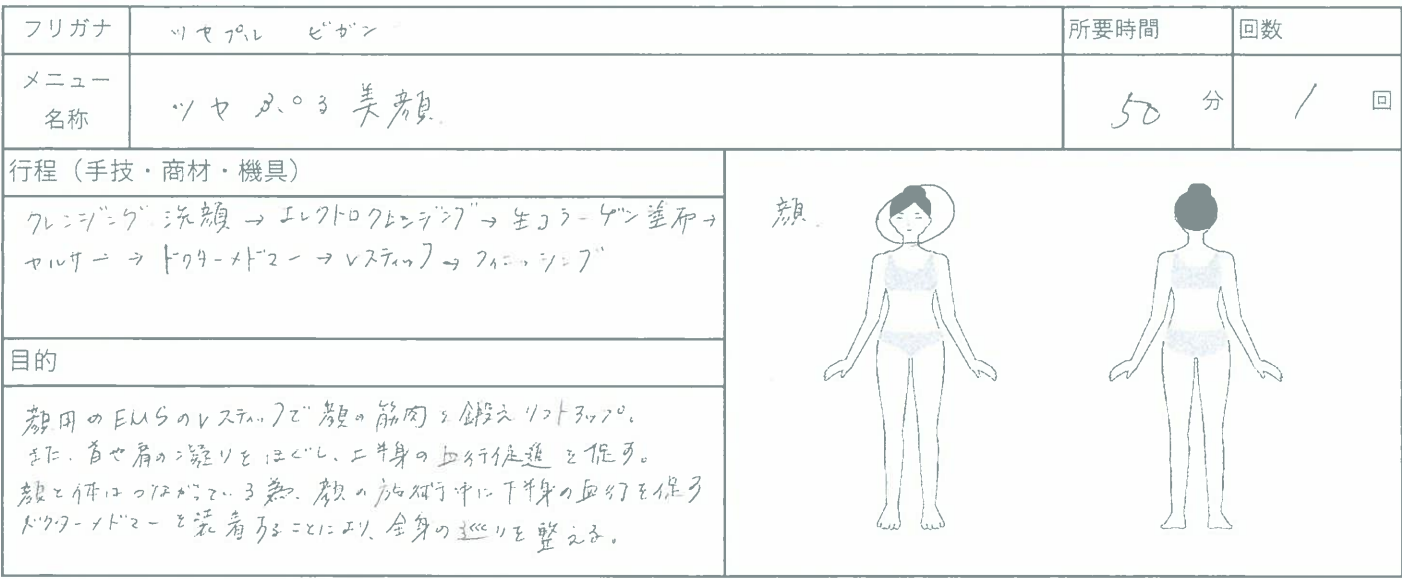 フリガナ ツヤプル ビガン 所要時間 回数
メニュー名称 ツヤぷる美顔 50分 1回
行程（手技・商材・機具）
クレンジング 洗顔→エレクトロクレンジング→生コラーゲン塗布→
セルサー→ドクターメドマー→Vスティック→フィニッシング
顔
目的
顔用のEMSのVスティックで顔の筋肉を鍛えリフトアップ。
また、首や肩の凝りをほぐし、上半身の血行促進を促す。
顔と体はつながっている為、顔の施術中に下半身の血行を促す
ドクターメドマーを装着することにより、全身の巡りを整える。